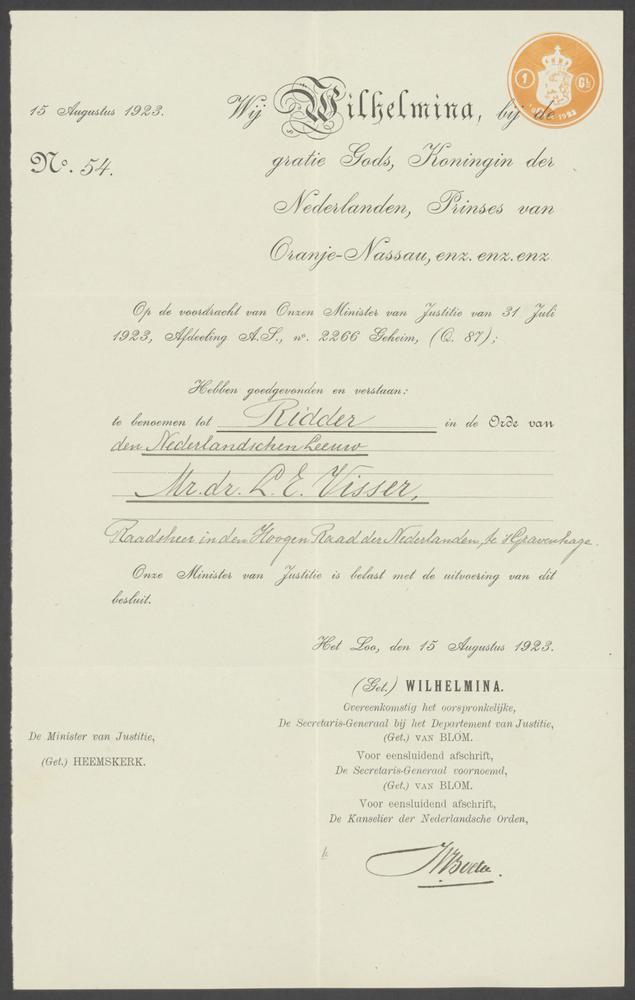 15 Augustus 1923.
Nº. 54.
1 Gld
Wij Wilhelmina, bij de
gratie Gods, Koningin der
Nederlanden, Prinses van
Oranje-Nassau, enz. enz. enz.
Op de voordracht van Onzen Minister van Justitie van 31 Juli
1923, Afdeeling A.S., nº. 2266 Geheim, (Q. 87);
Hebben goedgevonden en verstaan:
te benoemen tot Ridder in de Orde van
den Nederlandschen Leeuw
Mr. dr. L. E. Visser,
Raadsheer in den Hoogen Raad der Nederlanden, te 's Gravenhage.
Onze Minister van Justitie is belast met de uitvoering van dit
besluit.
Het Loo, den 15 Augustus 1923.
(Get.) WILHELMINA.
Overeenkomstig het oorspronkelijke,
De Secretaris-Generaal bij het Departement van Justitie,
(Get.) VAN BLOM.
Voor eensluidend afschrift,
De Secretaris-Generaal voornoemd,
(Get.) VAN BLOM.
Voor eensluidend afschrift,
De Kanselier der Nederlandsche Orden,
De Minister van Justitie,
(Get.) HEEMSKERK.